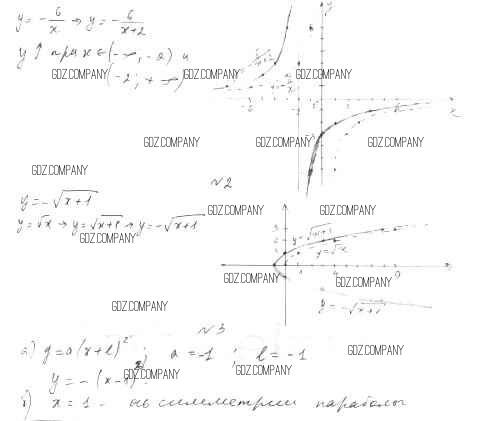 y = -6/x → y = -6/(x+2)
y ↑ при x ∈ (-∞, -2) и
(-2; +∞)
GDZ.COMPANY GDZ.COMPANY GDZ.COMPANY
GDZ.COMPANY GDZ.COMPANY GDZ.COMPANY
GDZ.COMPANY
№2
y = -√(x+1)
y = √x → y = √(x+1) → y = -√(x+1)
GDZ.COMPANY GDZ.COMPANY
GDZ.COMPANY
y = √(x+1)
y = √x
GDZ.COMPANY GDZ.COMPANY
y = -√(x+1)
GDZ.COMPANY
№3
а) y = a(x+l)²; a = -1; l = -1
GDZ.COMPANY
y = -(x-1)²
GDZ.COMPANY GDZ.COMPANY
x = 1 - ось симметрии параболы